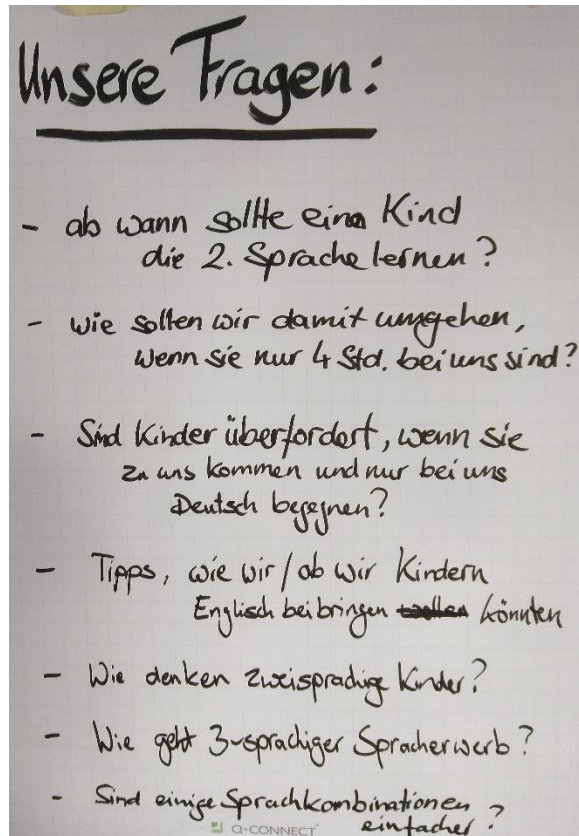 Unsere Fragen:
- ab wann sollte ein Kind
die 2. Sprache lernen?
- wie sollen wir damit umgehen,
wenn sie nur 4 Std. bei uns sind?
- Sind Kinder überfordert, wenn sie
zu uns kommen und nur bei uns
Deutsch begegnen?
- Tipps, wie wir / ob wir Kindern
Englisch beibringen könnten
- Wie denken zweisprachige Kinder?
- Wie geht 3-sprachiger Spracherwerb?
- Sind einige Sprachkombinationen
einfacher?
Q-CONNECT